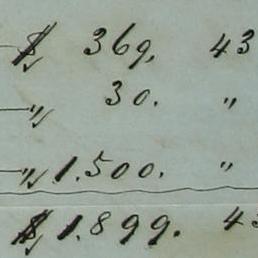 $ 369, 43
" 30. "
" 1.500. "
$ 1.899. 43